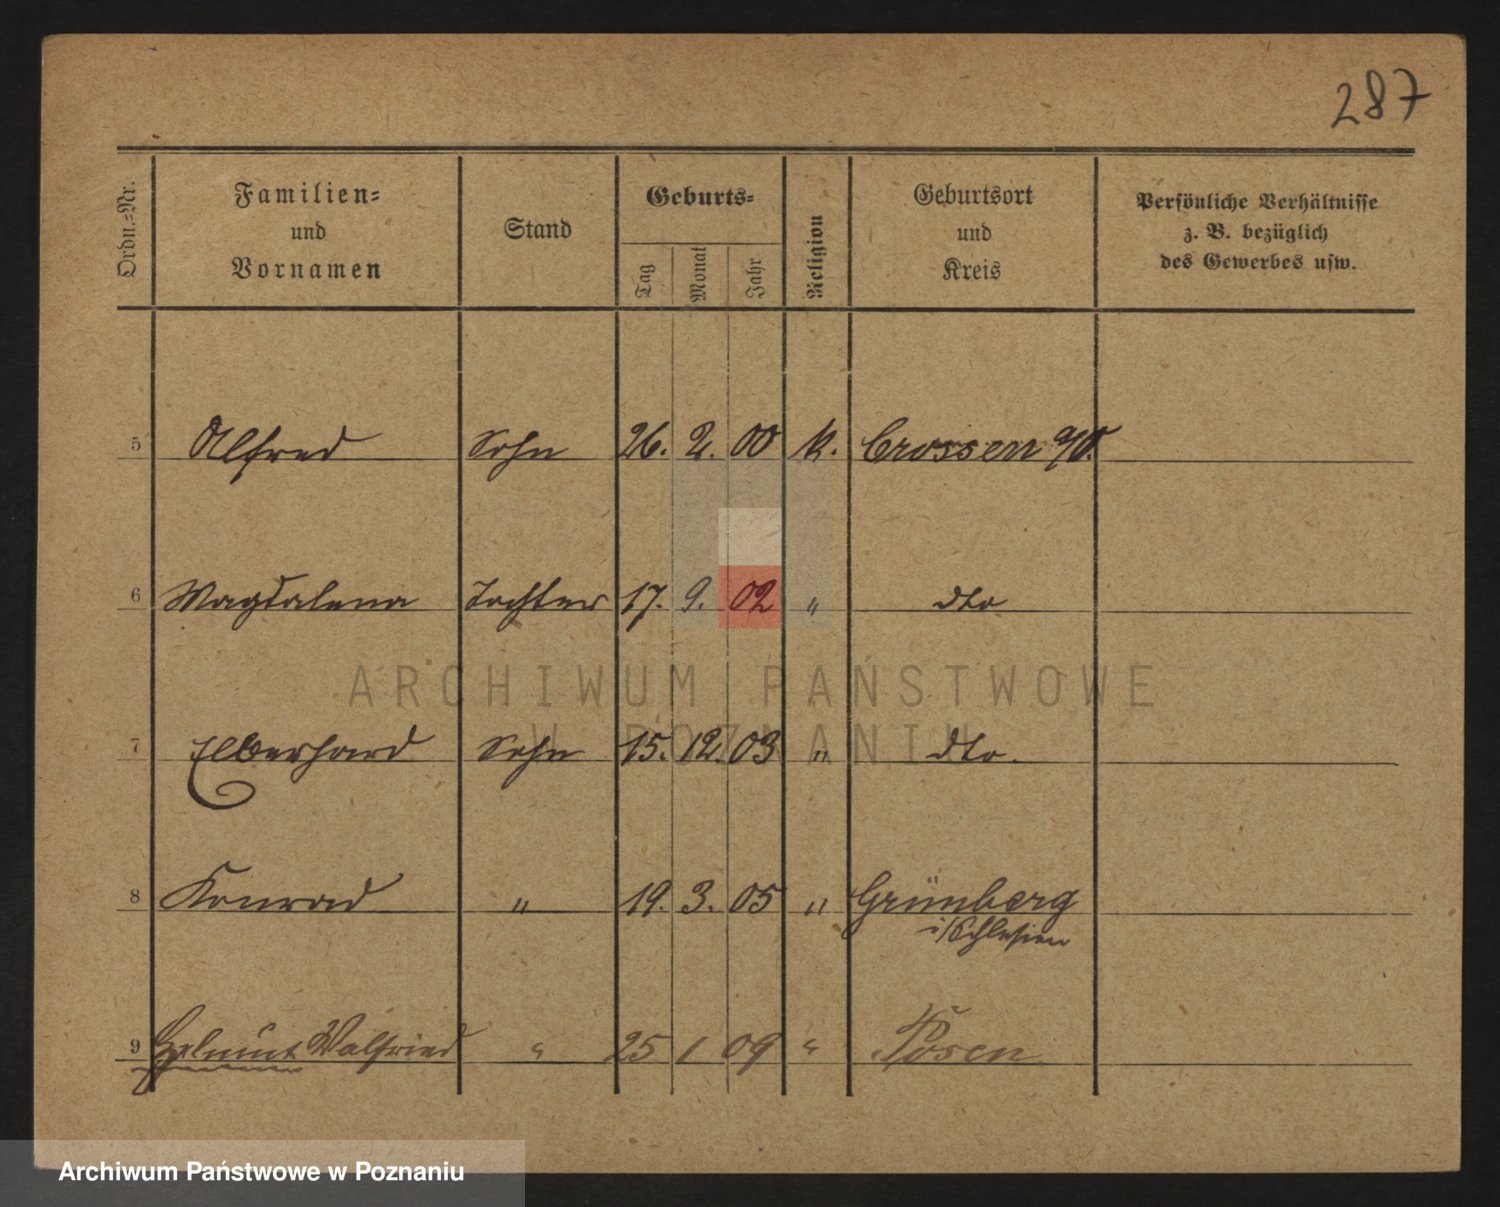 287
Ordn.=Nr.
Familien=
und
Vornamen
Stand
Geburts=
Tag
Monat
Jahr
Religion
Geburtsort
und
Kreis
Persönliche Verhältnisse
z. B. bezüglich
des Gewerbes usw.
5 Alfred Sohn 26. 2. 00 k. Crossen a/O.
6 Magdalena Tochter 17. 9. 02 " dto
ARCHIWUM PAŃSTWOWE
W POZNANIU
7 Elberhard Sohn 15. 12. 03 " dto.
8 Konrad " 19. 3. 05 " Grünberg
i/Schlesien
9 Helmut Walfried " 25 1 09 " Posen
Archiwum Państwowe w Poznaniu